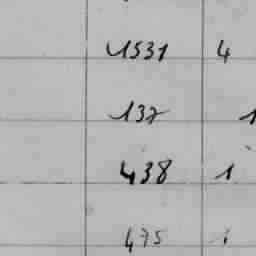 1531 4
137 1
438 1
475 1